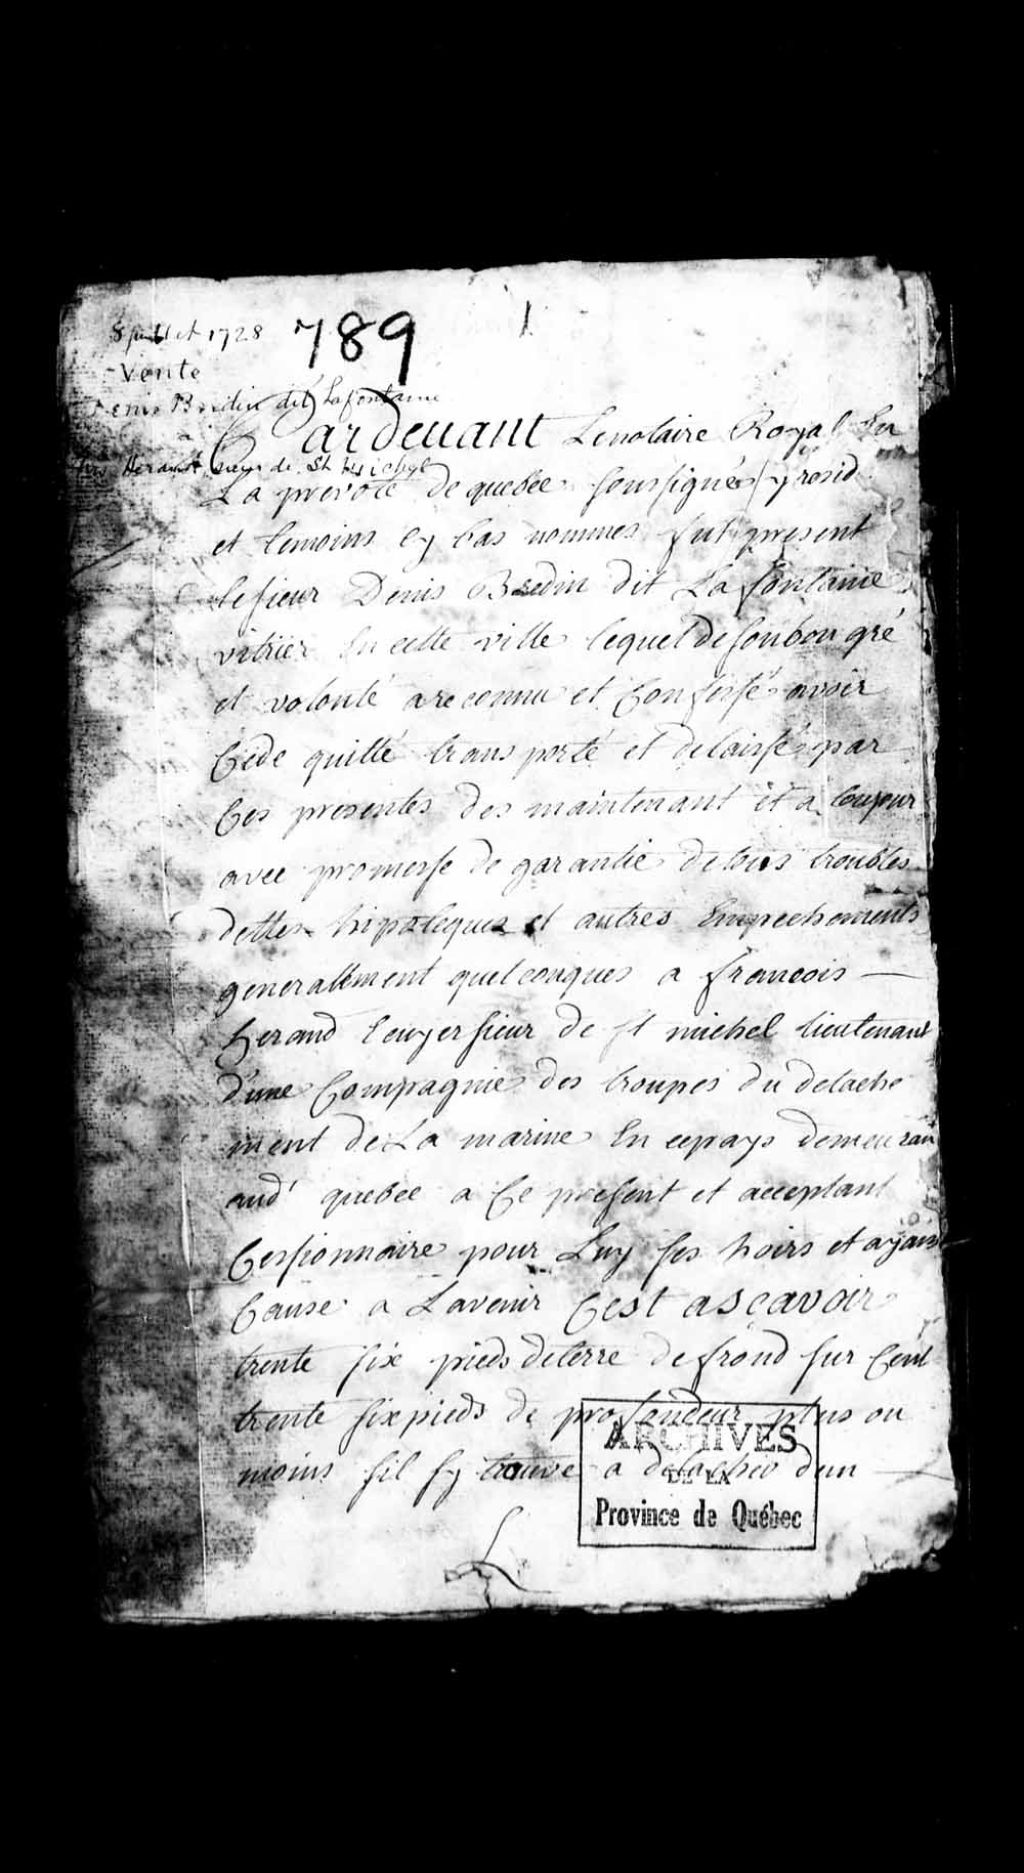 8 juillet 1728 789 1
Vente
Denis Bredin dit Lafontaine
Pardevant Le notaire Royal En
herault sieur de St Michel
La prevoté de quebec soussigné y resid
et temoins cy bas nommes fut present
le sieur Denis Bredin dit La fontaine
vitrier En cette ville lequel de son bon gré
et volonté a reconnu et Confessé avoir
Cede quitté transporté et delaissé par
Ces presentes des maintenant et a toujour
avec promesse de garantie de tous troubles
dettes hipoteques et autres Empechements
generallment quelconques a francois —
herand Ecuyer sieur de st michel lieutenant
d'une Compagnie des troupes du detache
ment de La marine En ce pays demeuran
aud' quebec a Ce present et acceptant
Cessionnaire pour Luy ses hoirs et ayans
Cause a Lavenir Cest ascavoir
trente six pieds de terre de frond sur Cent
trente six pieds de profondeur plus ou
moins sil sy trouve a detacher dun —
ARCHIVES
DE LA
Province de Québec